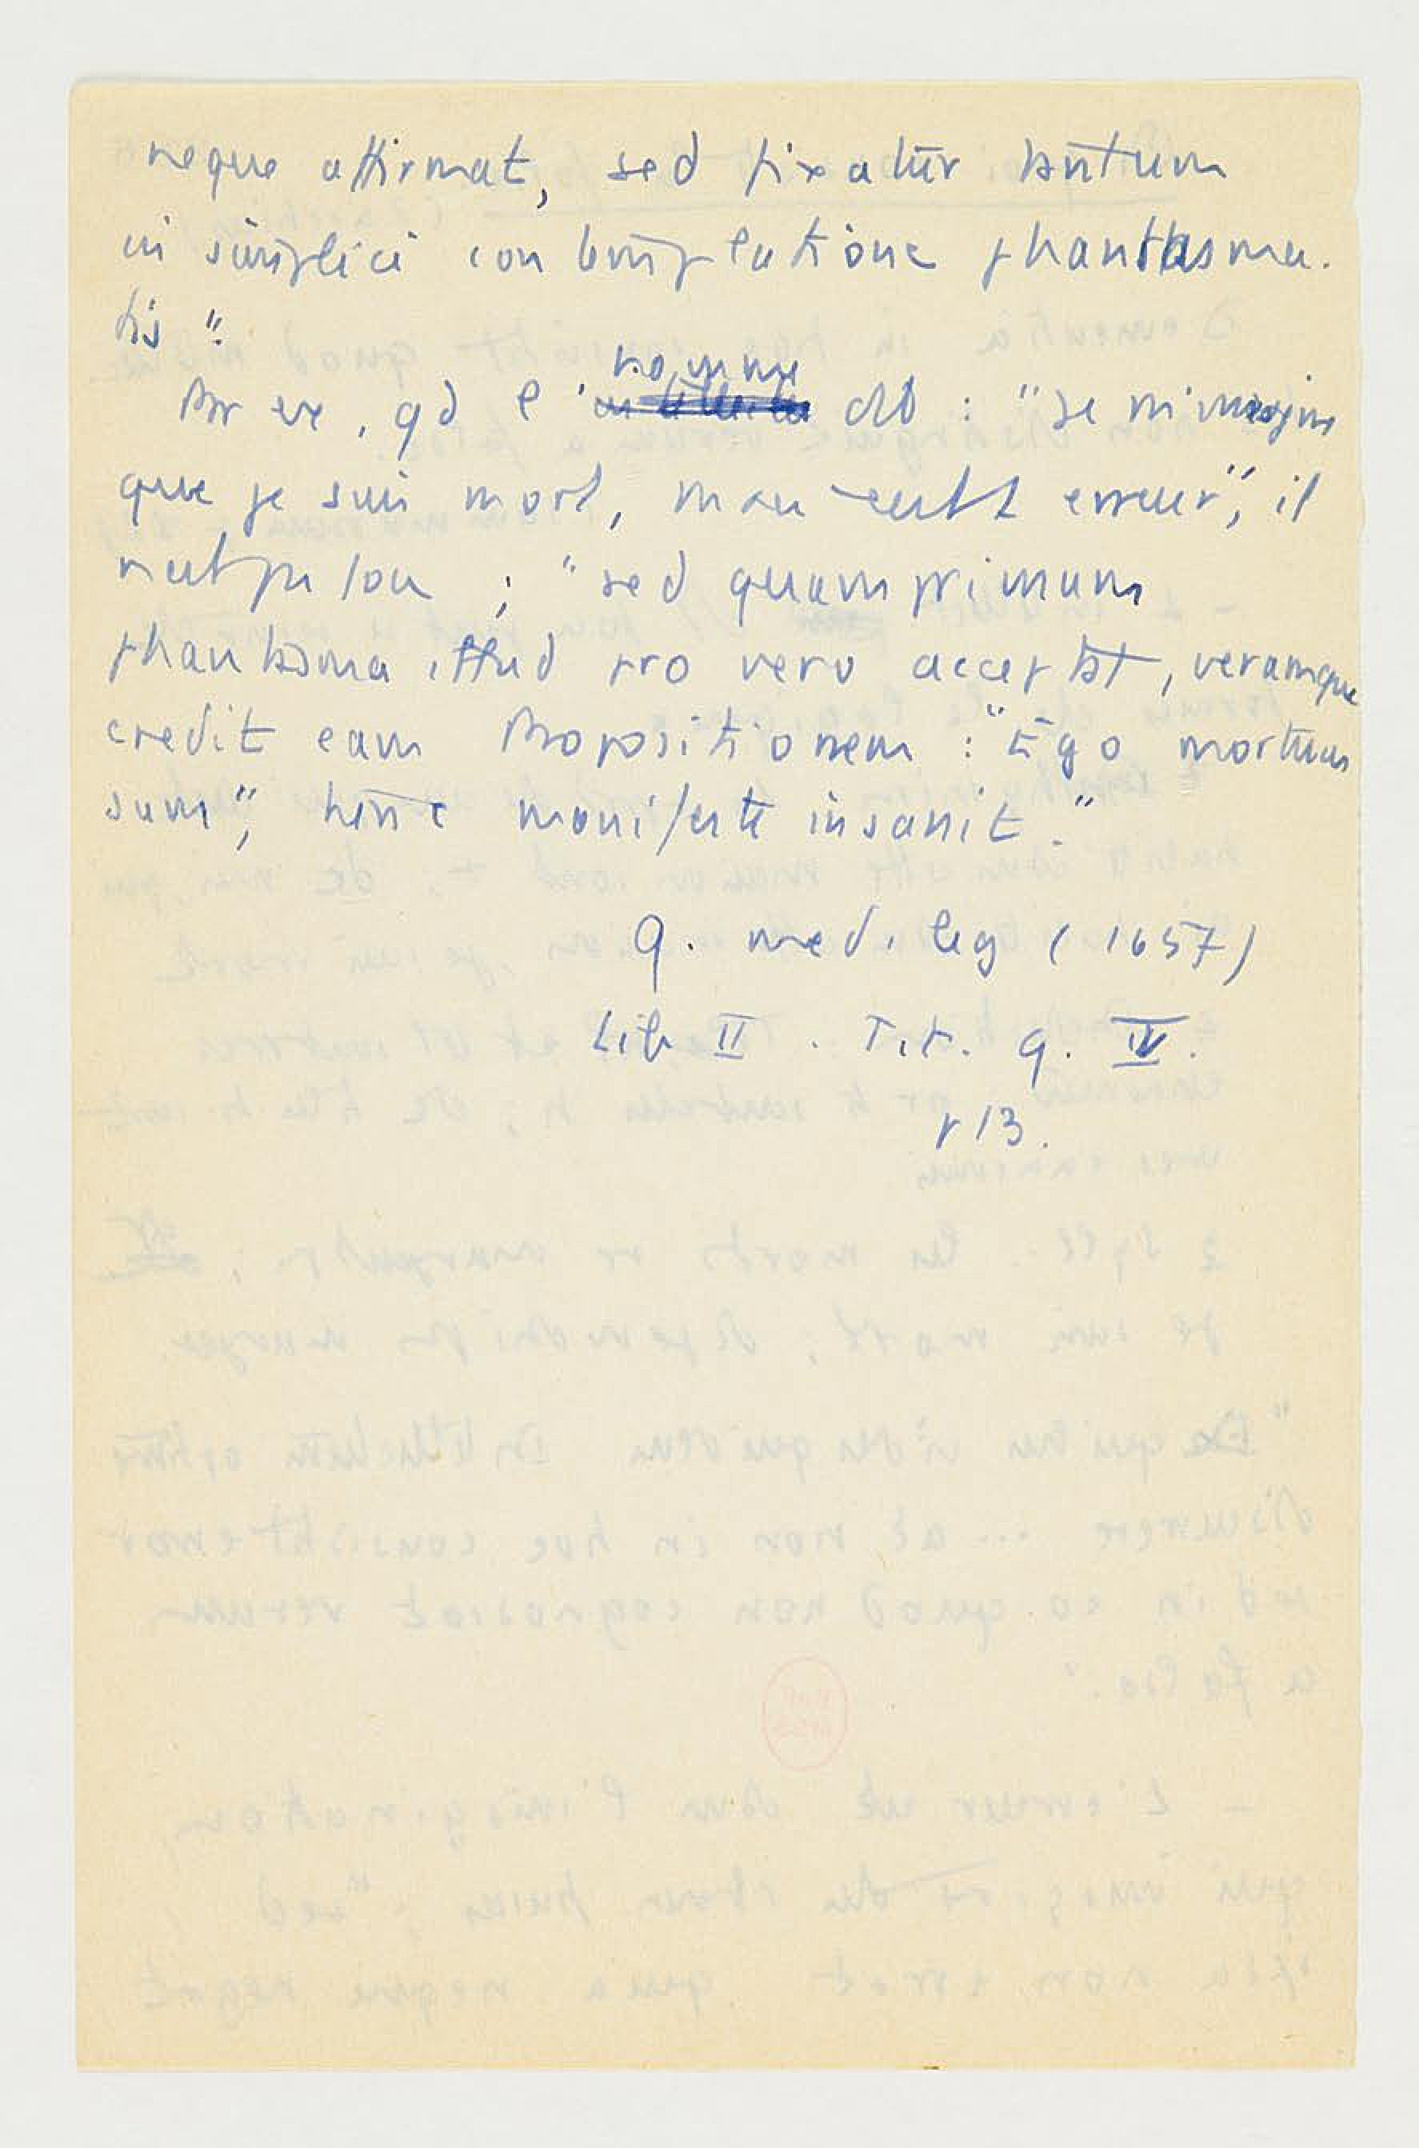 neque affirmat, sed fixatur tantum
in simplici contemplatione phantasma-
tis".
Par ex, qd l'homme dit : "je m'imagine
que je suis mort, mais c'est 1 erreur", il
n'est pas fou ; "sed quam primum
phantasma illud pro vero acceptat, veramque
credit eam propositionem : "Ego mortuus
sum", hinc manifeste insanit."
Q. med. leg (1657)
Lib II . Tit. q. IV.
p 13.